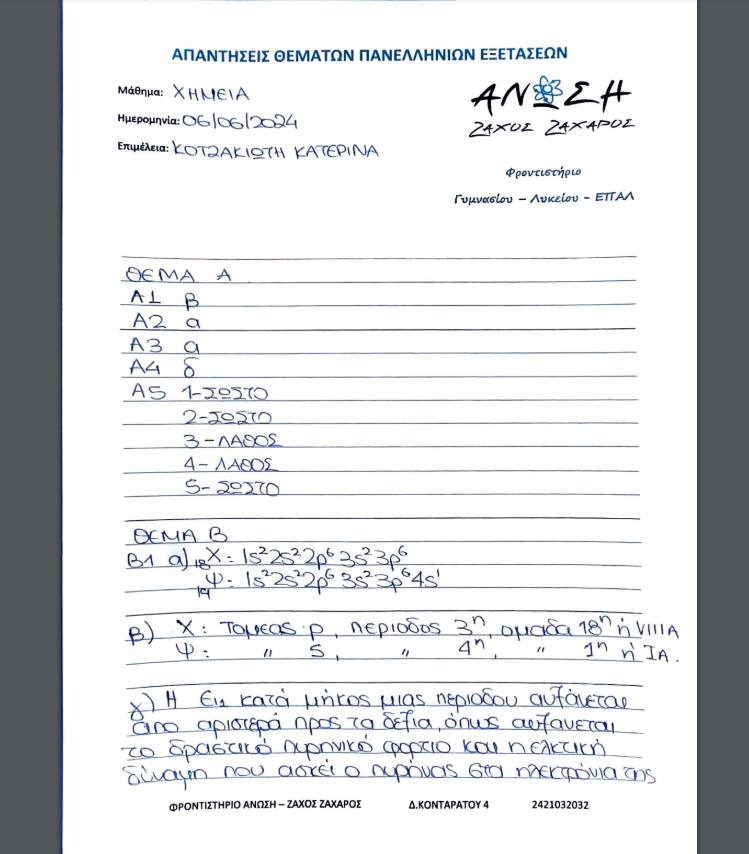 ΑΠΑΝΤΗΣΕΙΣ ΘΕΜΑΤΩΝ ΠΑΝΕΛΛΗΝΙΩΝ ΕΞΕΤΑΣΕΩΝ
Μάθημα: ΧΗΜΕΙΑ
Ημερομηνία: 06/06/2024
Επιμέλεια: ΚΟΤΖΑΚΙΩΤΗ ΚΑΤΕΡΙΝΑ
ΑΝΩΣΗ
ΖΑΧΟΣ ΖΑΧΑΡΟΣ
Φροντιστήριο
Γυμνασίου – Λυκείου – ΕΠΑΛ
ΘΕΜΑ Α
Α1 β
Α2 α
Α3 α
Α4 δ
Α5 1-ΣΩΣΤΟ
2-ΣΩΣΤΟ
3-ΛΑΘΟΣ
4-ΛΑΘΟΣ
5-ΣΩΣΤΟ
ΘΕΜΑ Β
Β1 α) ₁₈Χ: 1s²2s²2p⁶3s²3p⁶
₁₉Ψ: 1s²2s²2p⁶3s²3p⁶4s¹
β) Χ: Τομέας p, περίοδος 3η, ομάδα 18η ή VIIIA
Ψ: " s, " 4η, " 1η ή IA.
γ) Η Ει₁ κατά μήκος μιας περιόδου αυξάνεται
από αριστερά προς τα δεξιά, όπως αυξάνεται
το δραστικό πυρηνικό φορτίο και η ελκτική
δύναμη που ασκεί ο πυρήνας στα ηλεκτρόνια της
ΦΡΟΝΤΙΣΤΗΡΙΟ ΑΝΩΣΗ – ΖΑΧΟΣ ΖΑΧΑΡΟΣ Δ.ΚΟΝΤΑΡΑΤΟΥ 4 2421032032